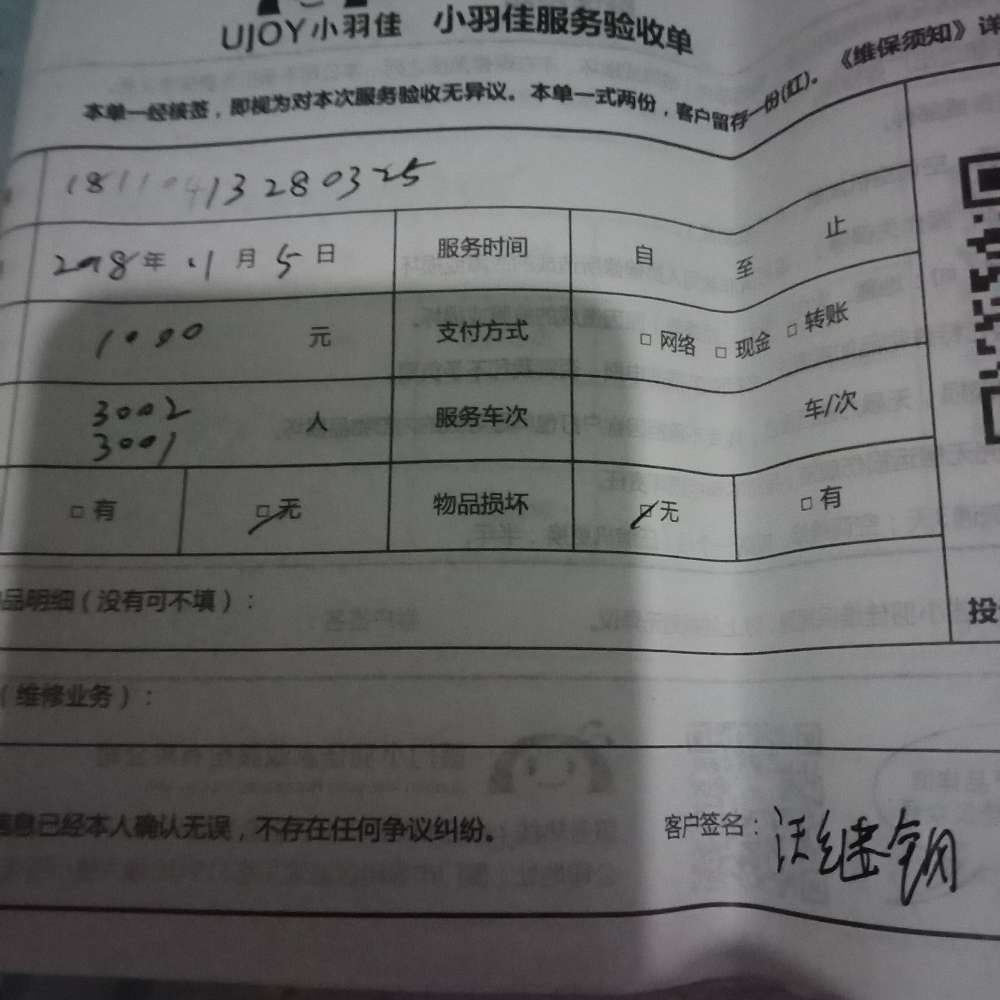 UJOY小羽佳 小羽佳服务验收单
本单一经接签，即视为对本次服务验收无异议。本单一式两份，客户留存一份(红)。《维保须知》详
18110413280325
2018年11月5日 服务时间 自 至 止
1000 元 支付方式 □网络 □现金 □转账
3002
3001 人 服务车次 车/次
□有 □无 物品损坏 □无 □有
品明细（没有可不填）：
投
（维修业务）：
信息已经本人确认无误，不存在任何争议纠纷。 客户签名：汪继钢